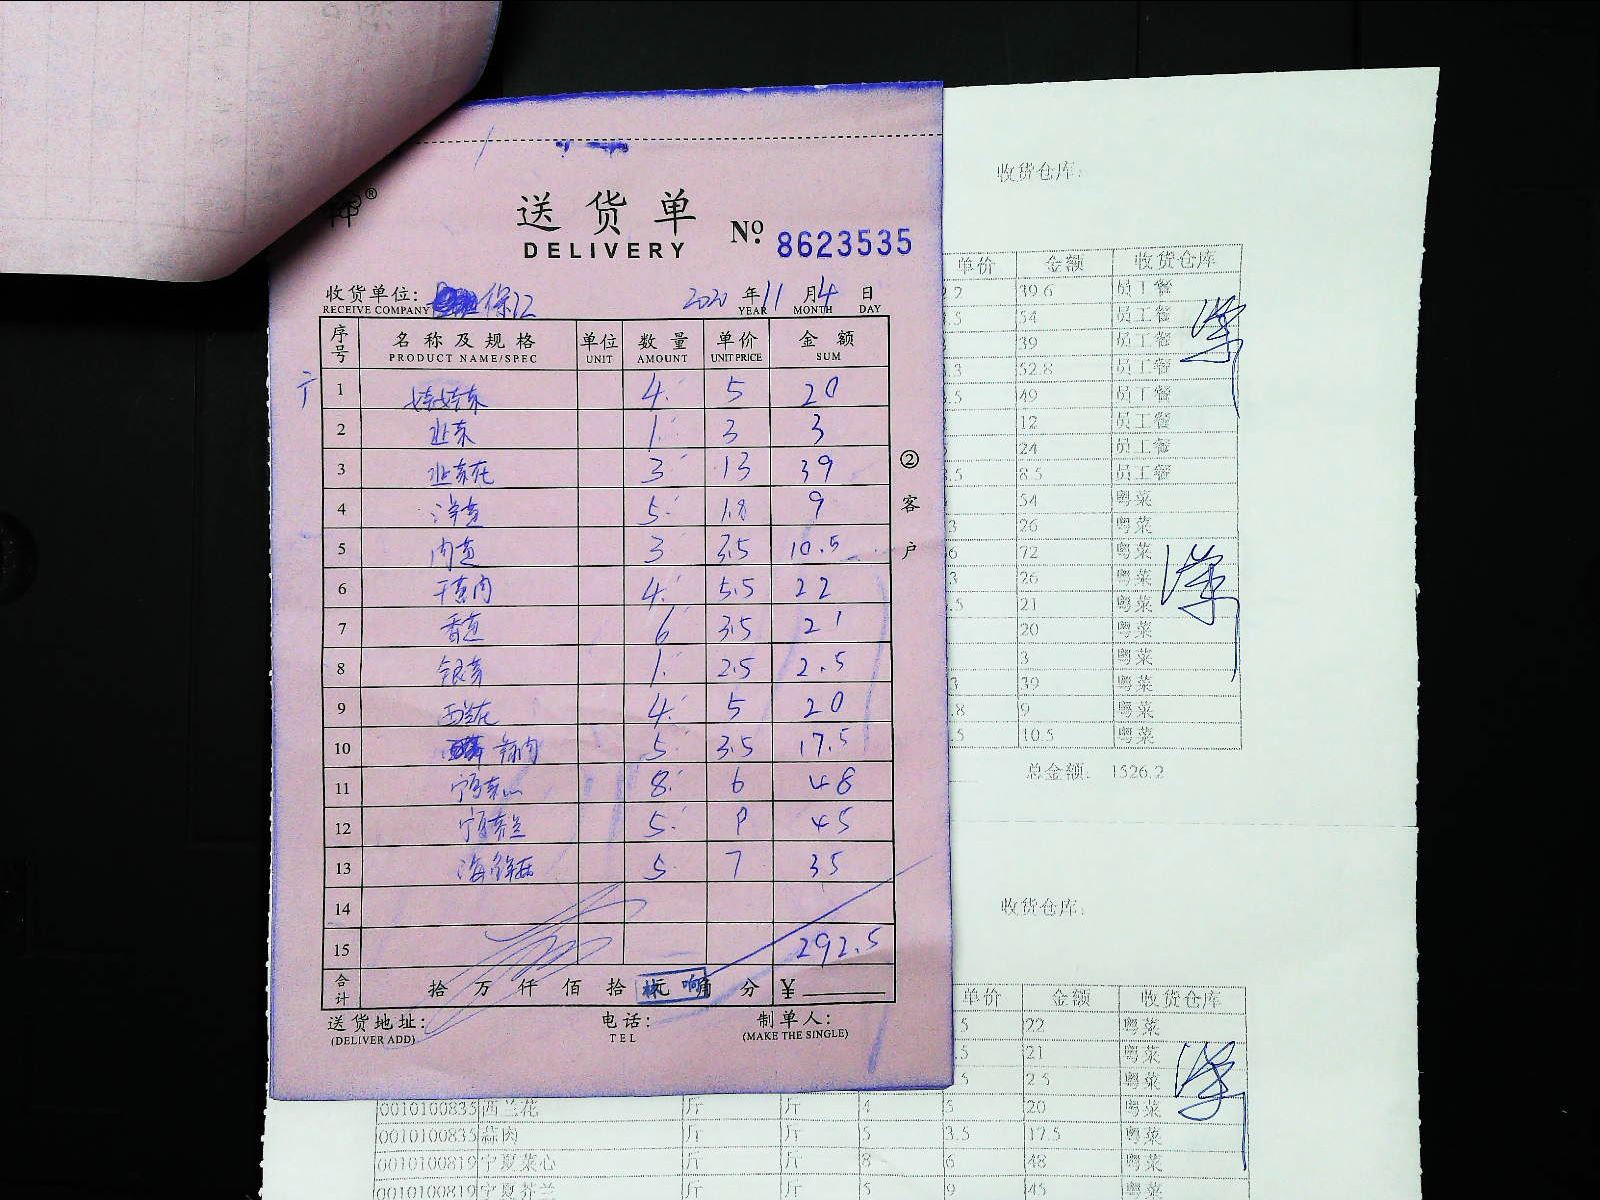 送货单
DELIVERY
No. 8623535
收货单位: 保江 2020年11月4日
RECEIVE COMPANY YEAR MONTH DAY
序号 名称及规格 单位 数量 单价 金额
PRODUCT NAME/SPEC UNIT AMOUNT UNIT PRICE SUM
1 娃娃菜 4 5 20
2 韭菜 1 3 3
3 韭菜花 3 13 39
4 洋葱 5 1.8 9
5 肉葱 3 3.5 10.5
6 干葱肉 4 5.5 22
7 香葱 6 3.5 21
8 银芽 1 2.5 2.5
9 西兰花 4 5 20
10 蒜肉 5 3.5 17.5
11 宁夏菜心 8 6 48
12 宁夏芥兰 5 9 45
13 海鲜菇 5 7 35
14
15 292.5
合计 拾 万 仟 佰 拾 元 角 分 ¥
送货地址: 电话: 制单人:
(DELIVER ADD) TEL (MAKE THE SINGLE)
② 客户
收货仓库:
单价 金额 收货仓库
.2 39.6 员工餐
.5 54 员工餐
39 员工餐
.3 52.8 员工餐
.5 49 员工餐
12 员工餐
24 员工餐
.5 8.5 员工餐
54 粤菜
3 26 粤菜
6 72 粤菜
3 26 粤菜
.5 21 粤菜
20 粤菜
3 粤菜
3 39 粤菜
.8 9 粤菜
.5 10.5 粤菜
总金额: 1526.2
收货仓库:
单价 金额 收货仓库
.5 22 粤菜
.5 21 粤菜
.5 2.5 粤菜
0010100835 西兰花 斤 斤 4 5 20 粤菜
0010100835 蒜肉 斤 斤 5 3.5 17.5 粤菜
0010100819 宁夏菜心 斤 斤 8 6 48 粤菜
0010100819 宁夏芥兰 斤 斤 5 9 45 粤菜